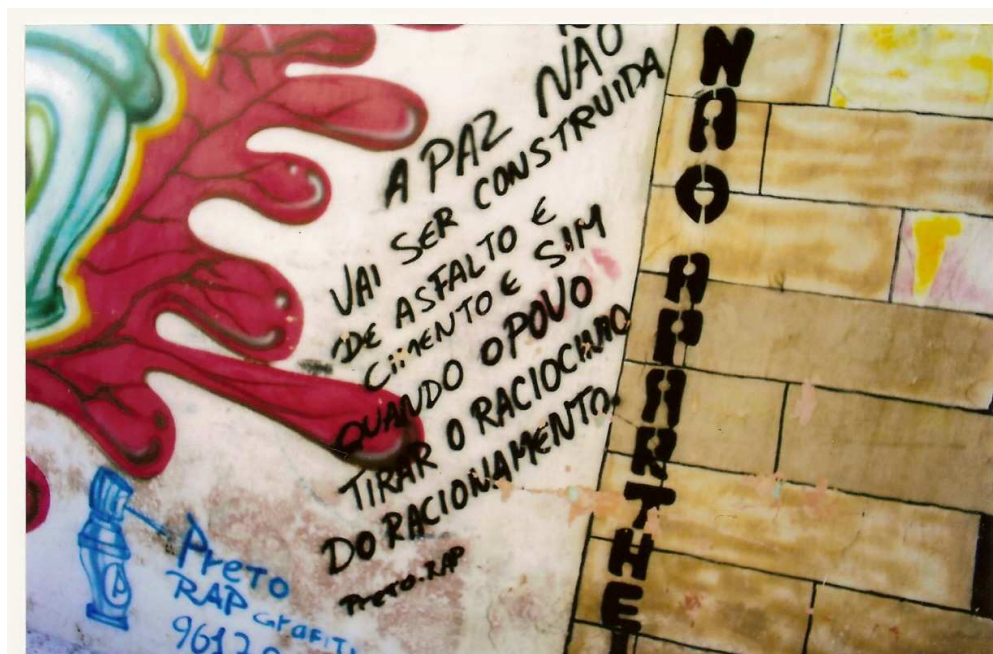 A PAZ NÃO
VAI SER CONSTRUIDA
DE ASFALTO E
CiMENTO E SIM
QUANDO O POVO
TIRAR O RACIOCINIO
DO RACIONAMENTO.
PrETO-RAP
PreTO
RAP GraFiTi
9612
NAO APARTHEI